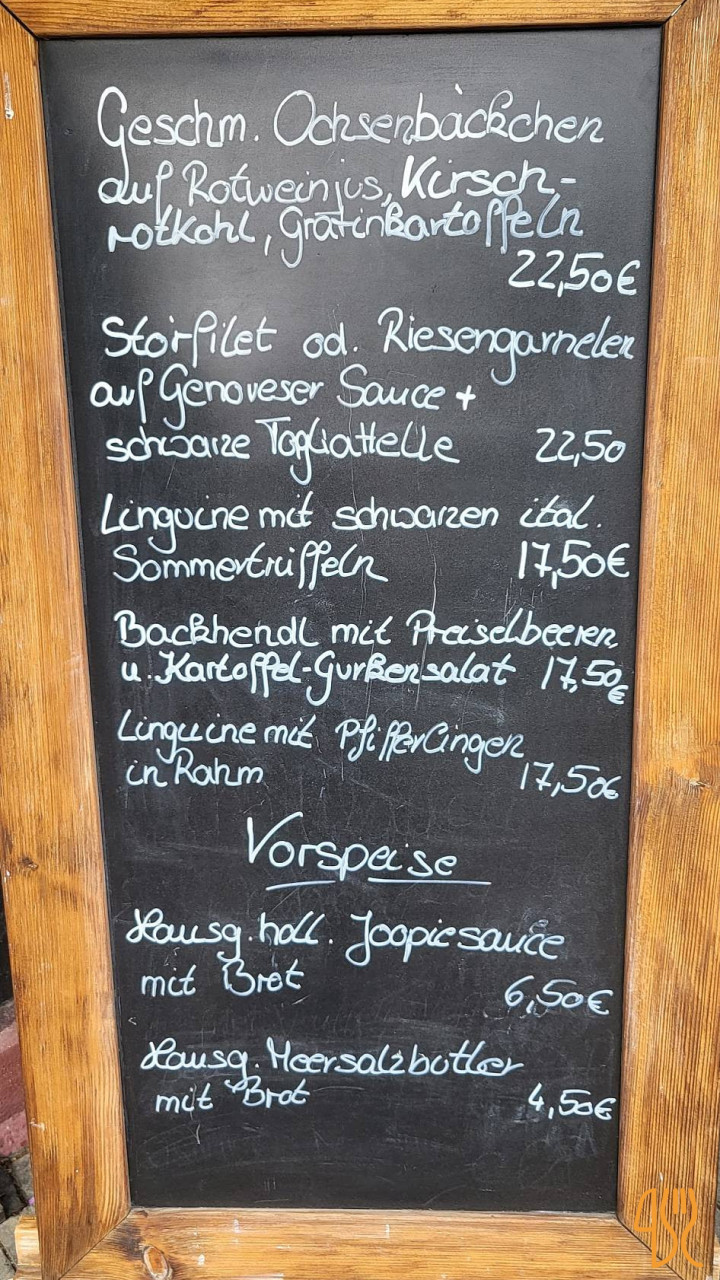 Geschm. Ochsenbäckchen
auf Rotweinjus, Kirsch-
rotkohl, Gratinkartoffeln
22,50€
Störfilet od. Riesengarnelen
auf Genoveser Sauce +
schwarze Tagliattelle 22,50
Linguine mit schwarzen ital.
Sommertrüffeln 17,50€
Backhendl mit Preiselbeeren
u. Kartoffel-Gurkensalat 17,50€
Linguine mit Pfifferlingen
in Rahm 17,50€
Vorspeise
Hausg. holl. Joopiesauce
mit Brot 6,50€
Hausg. Meersalzbutter
mit Brot 4,50€